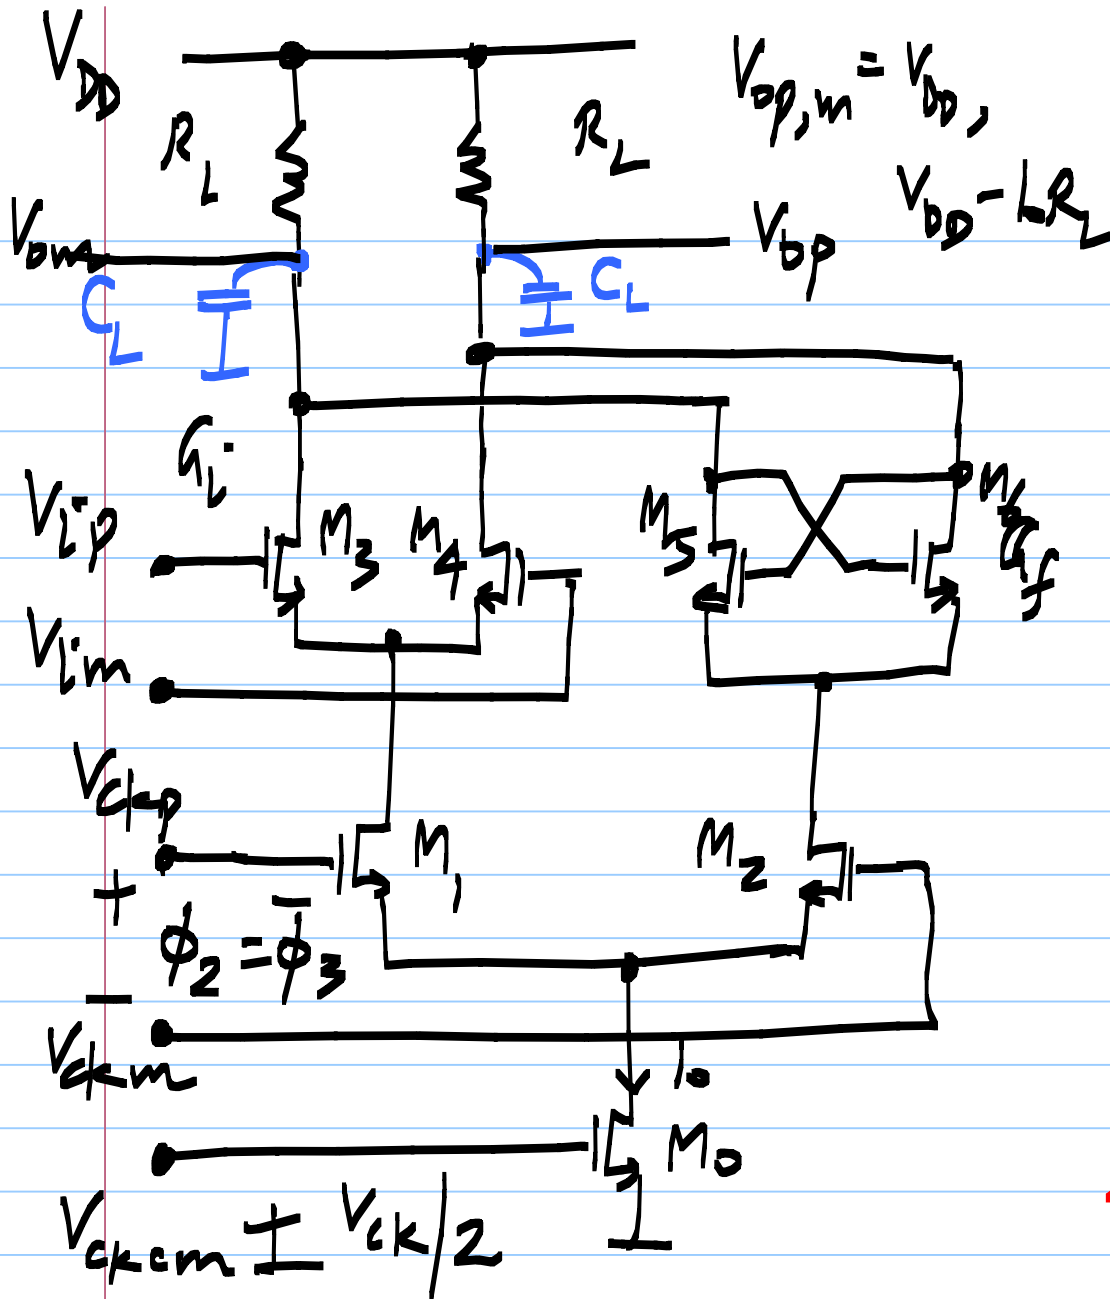 V_DD
V_op,m = V_DD,
R_L
R_L
V_DD - I_0 R_L
V_om
V_op
C_L
C_L
G_i
V_ip
M_3
M_4
M_5
M_6
G_f
V_im
V_ckp
M_1
M_2
+
ϕ_2 = ϕ̅_3
−
V_ckm
I_0
M_0
V_ckcm ± V_ck/2